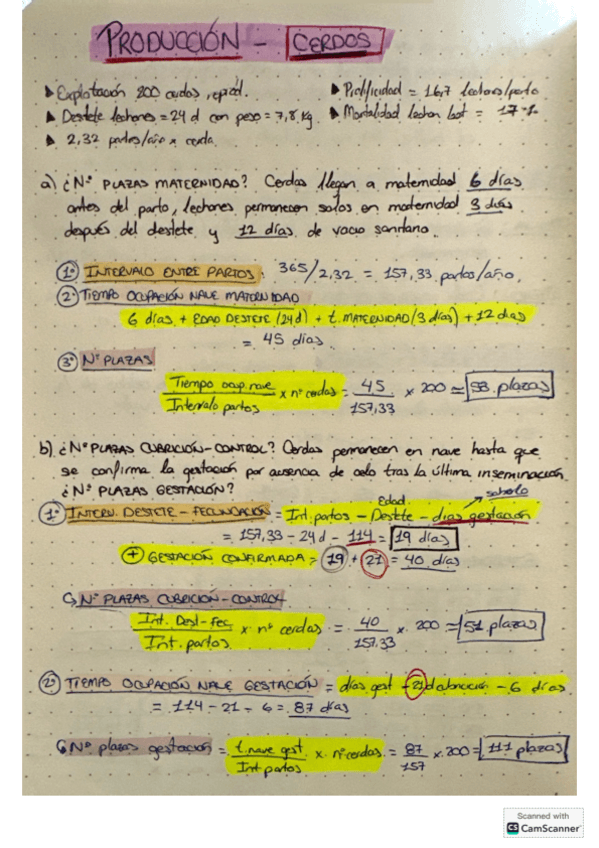 PRODUCCIÓN - CERDOS
▶ Explotación 200 cerdas reprod.
▶ Destete lechones = 24 d con peso = 7,8 kg
▶ 2,32 partos/año x cerda.
▶ Prolificidad = 16,7 lechones/parto
▶ Mortalidad lechon lact = 17%
a) ¿Nº PLAZAS MATERNIDAD? Cerdas llegan a maternidad 6 días
antes del parto, lechones permanecen solos en maternidad 3 días
después del destete y 12 días de vacío sanitario.
1º INTERVALO ENTRE PARTOS: 365/2,32 = 157,33 partos/año.
2º TIEMPO OCUPACIÓN NAVE MATERNIDAD
6 días + EDAD DESTETE (24 d) + t. MATERNIDAD (3 días) + 12 días
= 45 días
3º Nº PLAZAS
Tiempo ocup. nave / Intervalo partos x nº cerdas = 45 / 157,33 x 200 = 58 plazas
b) ¿Nº PLAZAS CUBRICIÓN-CONTROL? Cerdas permanecen en nave hasta que
se confirma la gestación por ausencia de celo tras la última inseminación
¿Nº PLAZAS GESTACIÓN?
saberlo
1º INTERV. DESTETE - FECUNDACIÓN = Int. partos - Edad Destete - días gestación
= 157,33 - 24 d - 114 = 19 días
+ GESTACIÓN CONFIRMADA = 19 + 21 = 40 días
↳ Nº PLAZAS CUBRICIÓN-CONTROL
Int. Dest-Fec / Int. partos x nº cerdas = 40 / 157,33 x 200 = 51 plazas
2º TIEMPO OCUPACIÓN NAVE GESTACIÓN = días gest - 21 d - 6 días
= 114 - 21 - 6 = 87 días
↳ Nº plazas gestación = t. nave gest. / Int. partos x nº cerdas = 87 / 157 x 200 = 111 plazas
Scanned with
CS CamScanner